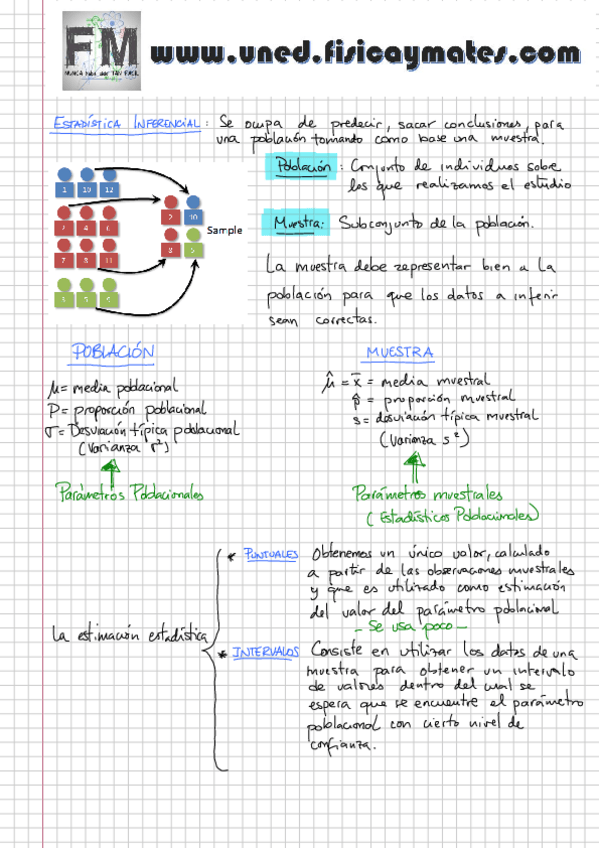 FM
NUNCA HABÍA SIDO TAN FÁCIL
www.uned.fisicaymates.com
ESTADÍSTICA INFERENCIAL: Se ocupa de predecir, sacar conclusiones, para
una población tomando como base una muestra.
1 10 12
2 10
Sample
8
7 8 11
Población: Conjunto de individuos sobre
los que realizamos el estudio
Muestra: Subconjunto de la población.
La muestra debe representar bien a la
población para que los datos a inferir
sean correctas.
POBLACIÓN
μ = media poblacional
P = proporción poblacional
σ = Desviación típica poblacional
(Varianza σ²)
Parámetros Poblacionales
MUESTRA
μ̂ = x̄ = media muestral
p̂ = proporción muestral
s = desviación típica muestral
(Varianza s²)
Parámetros muestrales
(Estadísticos Poblacionales)
La estimación estadística
* PUNTUALES Obtenemos un único valor, calculado
a partir de las observaciones muestrales
y que es utilizado como estimación
del valor del parámetro poblacional
- Se usa poco -
* INTERVALOS Consiste en utilizar los datos de una
muestra para obtener un intervalo
de valores dentro del cual se
espera que se encuentre el parámetro
poblacional con cierto nivel de
confianza.